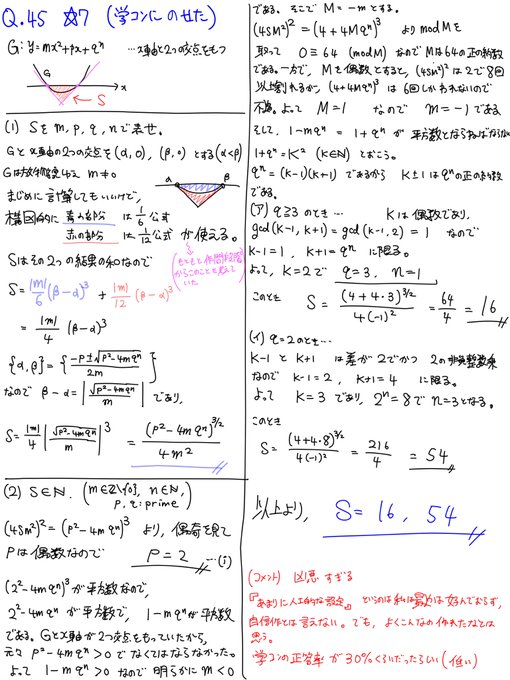 Q.45 ☆7 (学コンにのせた)
G: y=mx²+px+qⁿ …x軸と2つの交点をもつ
G
x
← S
(1) Sをm, p, q, nで表せ.
Gとx軸の2つの交点を(α,0), (β,0)とする(α<β)
Gは放物線ゆえ m≠0
まじめに計算してもいいけど,
構図的に 青の部分 は 1/6 公式
赤の部分 は 1/12 公式 が使える.
α β
Sはその2つの結果の和なので
S = |m|/6 (β-α)³ + |m|/12 (β-α)³
= |m|/4 (β-α)³
{α,β} = { (-p±√(p²-4mqⁿ))/2m }
なので β-α = |√(p²-4mqⁿ)/m| であり,
S = |m|/4 |√(p²-4mqⁿ)/m|³ = (p²-4mqⁿ)^{3/2}/4m²
(2) S∈ℕ. (m∈ℤ\{0}, n∈ℕ, p,q:prime)
(4Sm²)² = (p²-4mqⁿ)³ より, 偶奇を見て
pは偶数なので p=2 …(i)
(2²-4mqⁿ)³ が平方数なので,
2²-4mqⁿ が平方数で, 1-mqⁿが平方数
である. Gとx軸が2つ交点をもっていたから,
元々 p²-4mqⁿ>0 でなくてはならなかった.
よって 1-mqⁿ>0 なので明らかに m<0
である. そこで M=-m とする.
(4SM²)² = (4+4Mqⁿ)³ より mod Mを
取って 0≡64 (mod M) なのでMは64の正の約数
である. 一方で, Mを偶数とすると, (4SM²)²は2で8回
以上割れるが, (4+4Mqⁿ)³は6回しかわれないので
不適. よって M=1 なので m=-1 である
そして, 1-mqⁿ = 1+qⁿ が平方数とならねばならないから
1+qⁿ=K² (K∈ℕ) とおこう.
qⁿ=(K-1)(K+1) であるから K±1はqⁿの正の約数
である.
(ア) q≧3のとき… Kは偶数であり,
gcd(K-1, K+1) = gcd(K-1, 2) = 1 なので
K-1=1, K+1=qⁿ に限る.
よって, K=2で q=3, n=1
このとき S = (4+4・3)^{3/2}/4(-1)² = 64/4 = 16
(イ) q=2のとき…
K-1 と K+1 は差が2でかつ 2の非負整数乗
なので K-1=2, K+1=4 に限る.
よって K=3 であり, 2ⁿ=8 で n=3となる.
このとき
S = (4+4・8)^{3/2}/4(-1)² = 216/4 = 54
以上より, S=16, 54
(コメント) 凶悪すぎる
『あまりに人工的な設定』というのは私は最近は好んでおらず,
自信作とは言えない. でも, よくこんなの作れたなとは
思う.
学コンの正答率が30%くらいだったらしい(低い)